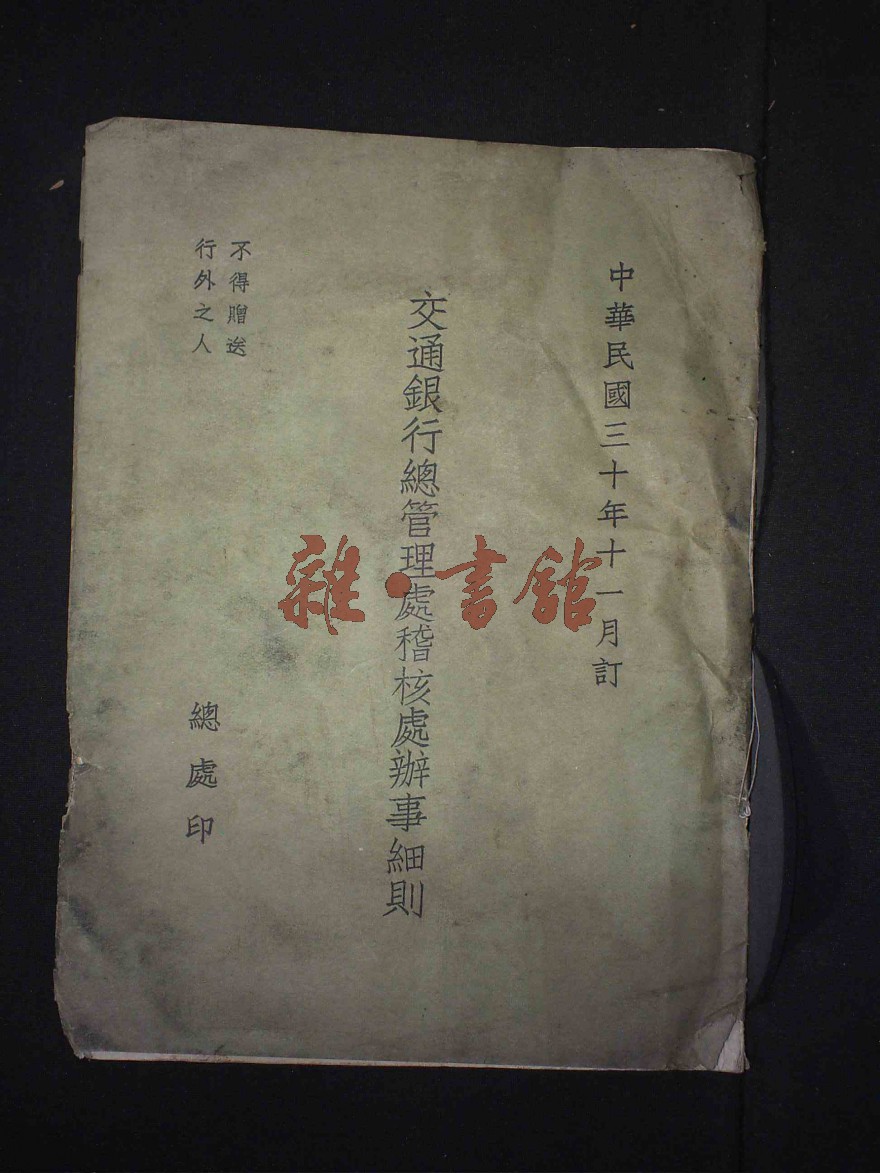 中華民國三十年十一月訂
交通銀行總管理處稽核處辦事細則
不得贈送
行外之人
總處印
雜·書館